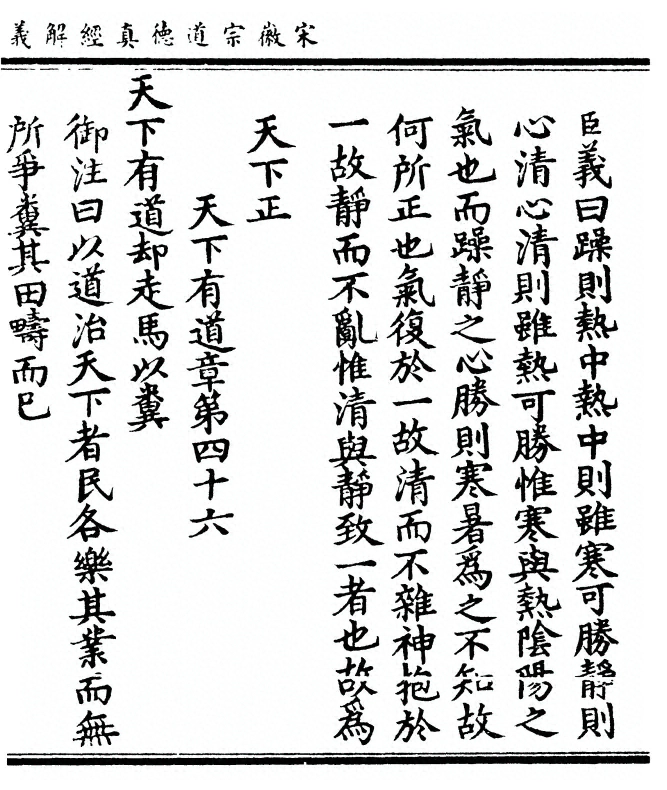 宋徽宗道德真經解義
臣義曰躁則熱中熱中則雖寒可勝靜則
心清心清則雖熱可勝惟寒與熱陰陽之
氣也而躁靜之心勝則寒暑爲之不知故
何所正也氣復於一故清而不雜神抱於
一故靜而不亂惟清與靜致一者也故爲
天下正
天下有道章第四十六
天下有道却走馬以糞
御注曰以道治天下者民各樂其業而無
所爭糞其田疇而已